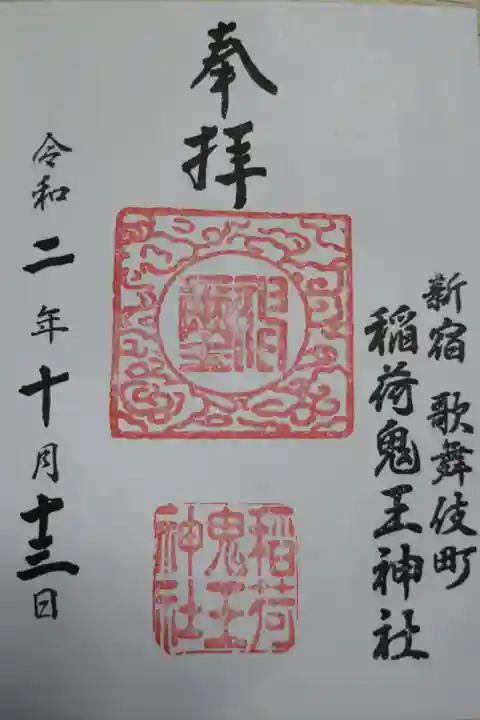 新宿 歌舞伎町
稲荷鬼王神社
奉拝
稲荷
鬼王
神社
令和二年十月十三日